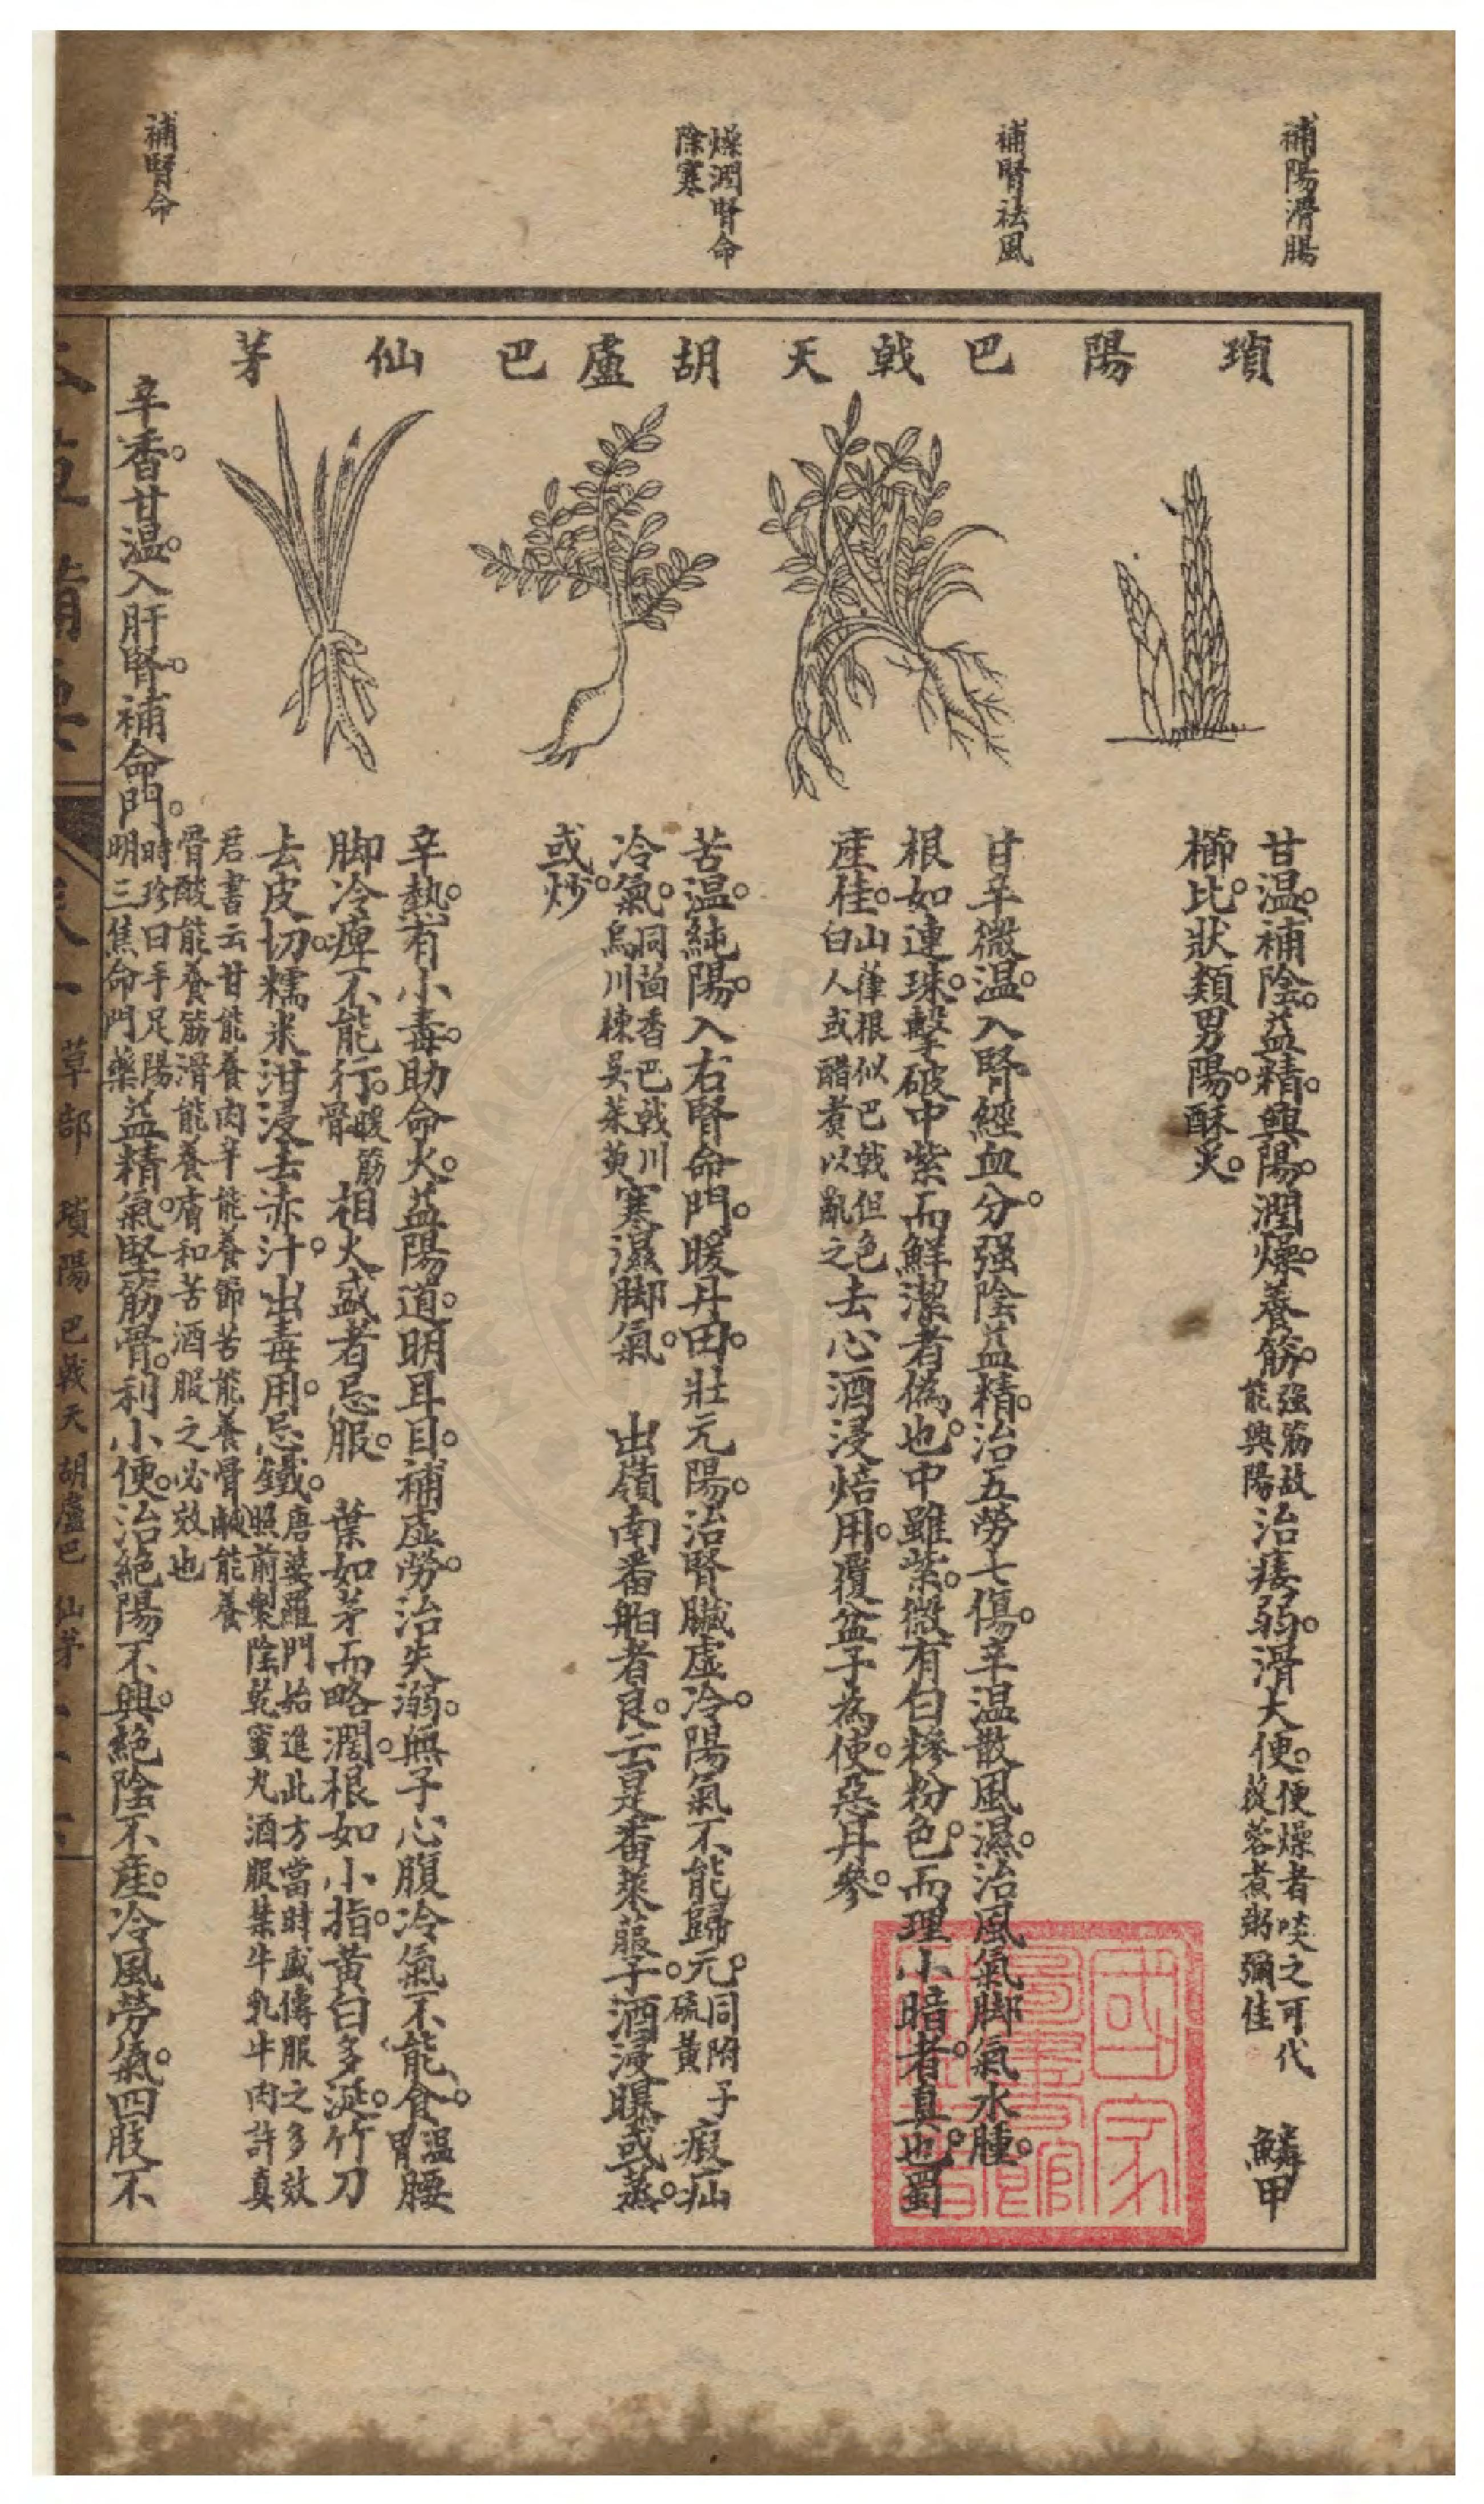 補陽滑腸
補腎祛風
燥潤腎命
除寒
補腎命
瑣陽
巴戟天
胡盧巴
仙茅
甘溫。補陰。益精。興陽。潤燥。養筋。強筋故能興陽治痿弱。滑大便。便燥者啖之可代蓯蓉煮粥彌佳 鱗甲
櫛比。狀類男陽。酥炙。
甘辛微溫。入腎經血分。强陰益精。治五勞七傷。辛溫散風濕。治風氣脚氣水腫。
根如連珠。擊破中紫而鮮潔者偽也。中雖紫。微有白糝粉色。而理小暗者。真也。蜀
產佳。山葎根似巴戟但色白人或醋煮以亂之去心酒浸焙用。覆盆子為使。惡丹參。
苦溫純陽。入右腎命門。暖丹田。壯元陽。治腎臟虛冷。陽氣不能歸元。同附子硫黃瘕疝
冷氣。同茴香巴戟川烏川楝吳茱萸寒濕脚氣。 出嶺南番舶者良。云是番萊菔子。酒浸曝或蒸。
或炒。
辛熱。有小毒。助命火。益陽道。明耳目。補虛勞。治失溺。無子心腹冷氣不能食。溫胃腰
脚冷痺不能行。暖筋骨相火盛者忌服。 葉如茅而略濶。根如小指。黃白多涎。竹刀
去皮切。糯米泔浸去赤汁。出毒用。忌鐵。唐婆羅門始進此方當時盛傳服之多效照前製陰乾蜜丸酒服禁牛乳牛肉許真
君書云甘能養肉辛能養節苦能養骨鹹能養
骨酸能養筋滑能養膚和苦酒服之必效也
辛香甘溫。入肝腎。補命門。時珍曰手足陽明三焦命門藥益精氣。堅筋骨。利小便。治絕陽不興。絕陰不產。冷風勞氣。四肢不
本草備要 卷一 草部 瑣陽 巴戟天 胡盧巴 仙茅
國家圖書館